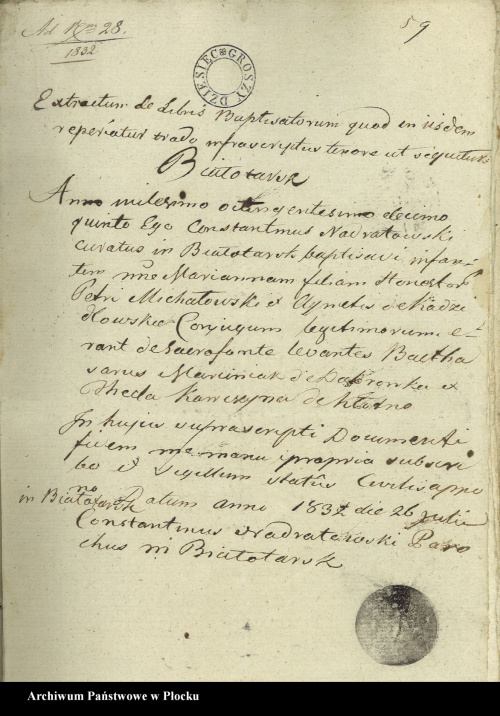 Ad Nrm 28.
1832
59
DZIESIĘĆ GROSZY
Extractum de Libris Baptisatorum quod in iisdem
reperiatur trado infrascriptus tenore ut sequitur
Białotarsk
Anno milesimo octingentesimo decimo
quinto Ego Constantinus Nadratowski
curatus in Białotarsk baptisavi infan
tem nne Mariannam filiam Honestor
Petri Michałowski et Agnetis de Radzi
kłowskie Conjugum legitimorum e
rant de Sacro fonte levantes Baltha
sarus Marciniak de et
Theda Kawczyna de
In hujus suprascripti Documenti
fidem me manu propria subscri
bo et Sigillum statûs Civilis appo
no Datum anno 1832 die 26 julii
in Białotarsk
Constantinus Nadratowski Paro
chus in Białotarsk
Archiwum Państwowe w Płocku